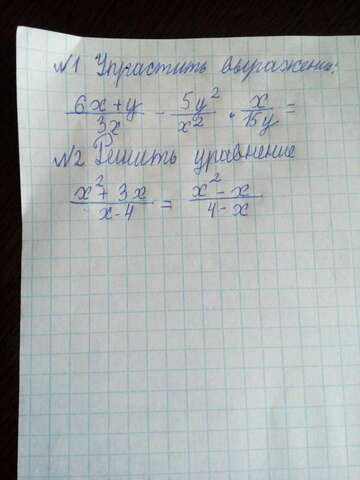 №1 Упрастить выражение:
6x+y/3x - 5y²/x² · x/15y =
№2 Решить уравнение
x²+3x/x-4 = x²-x/4-x